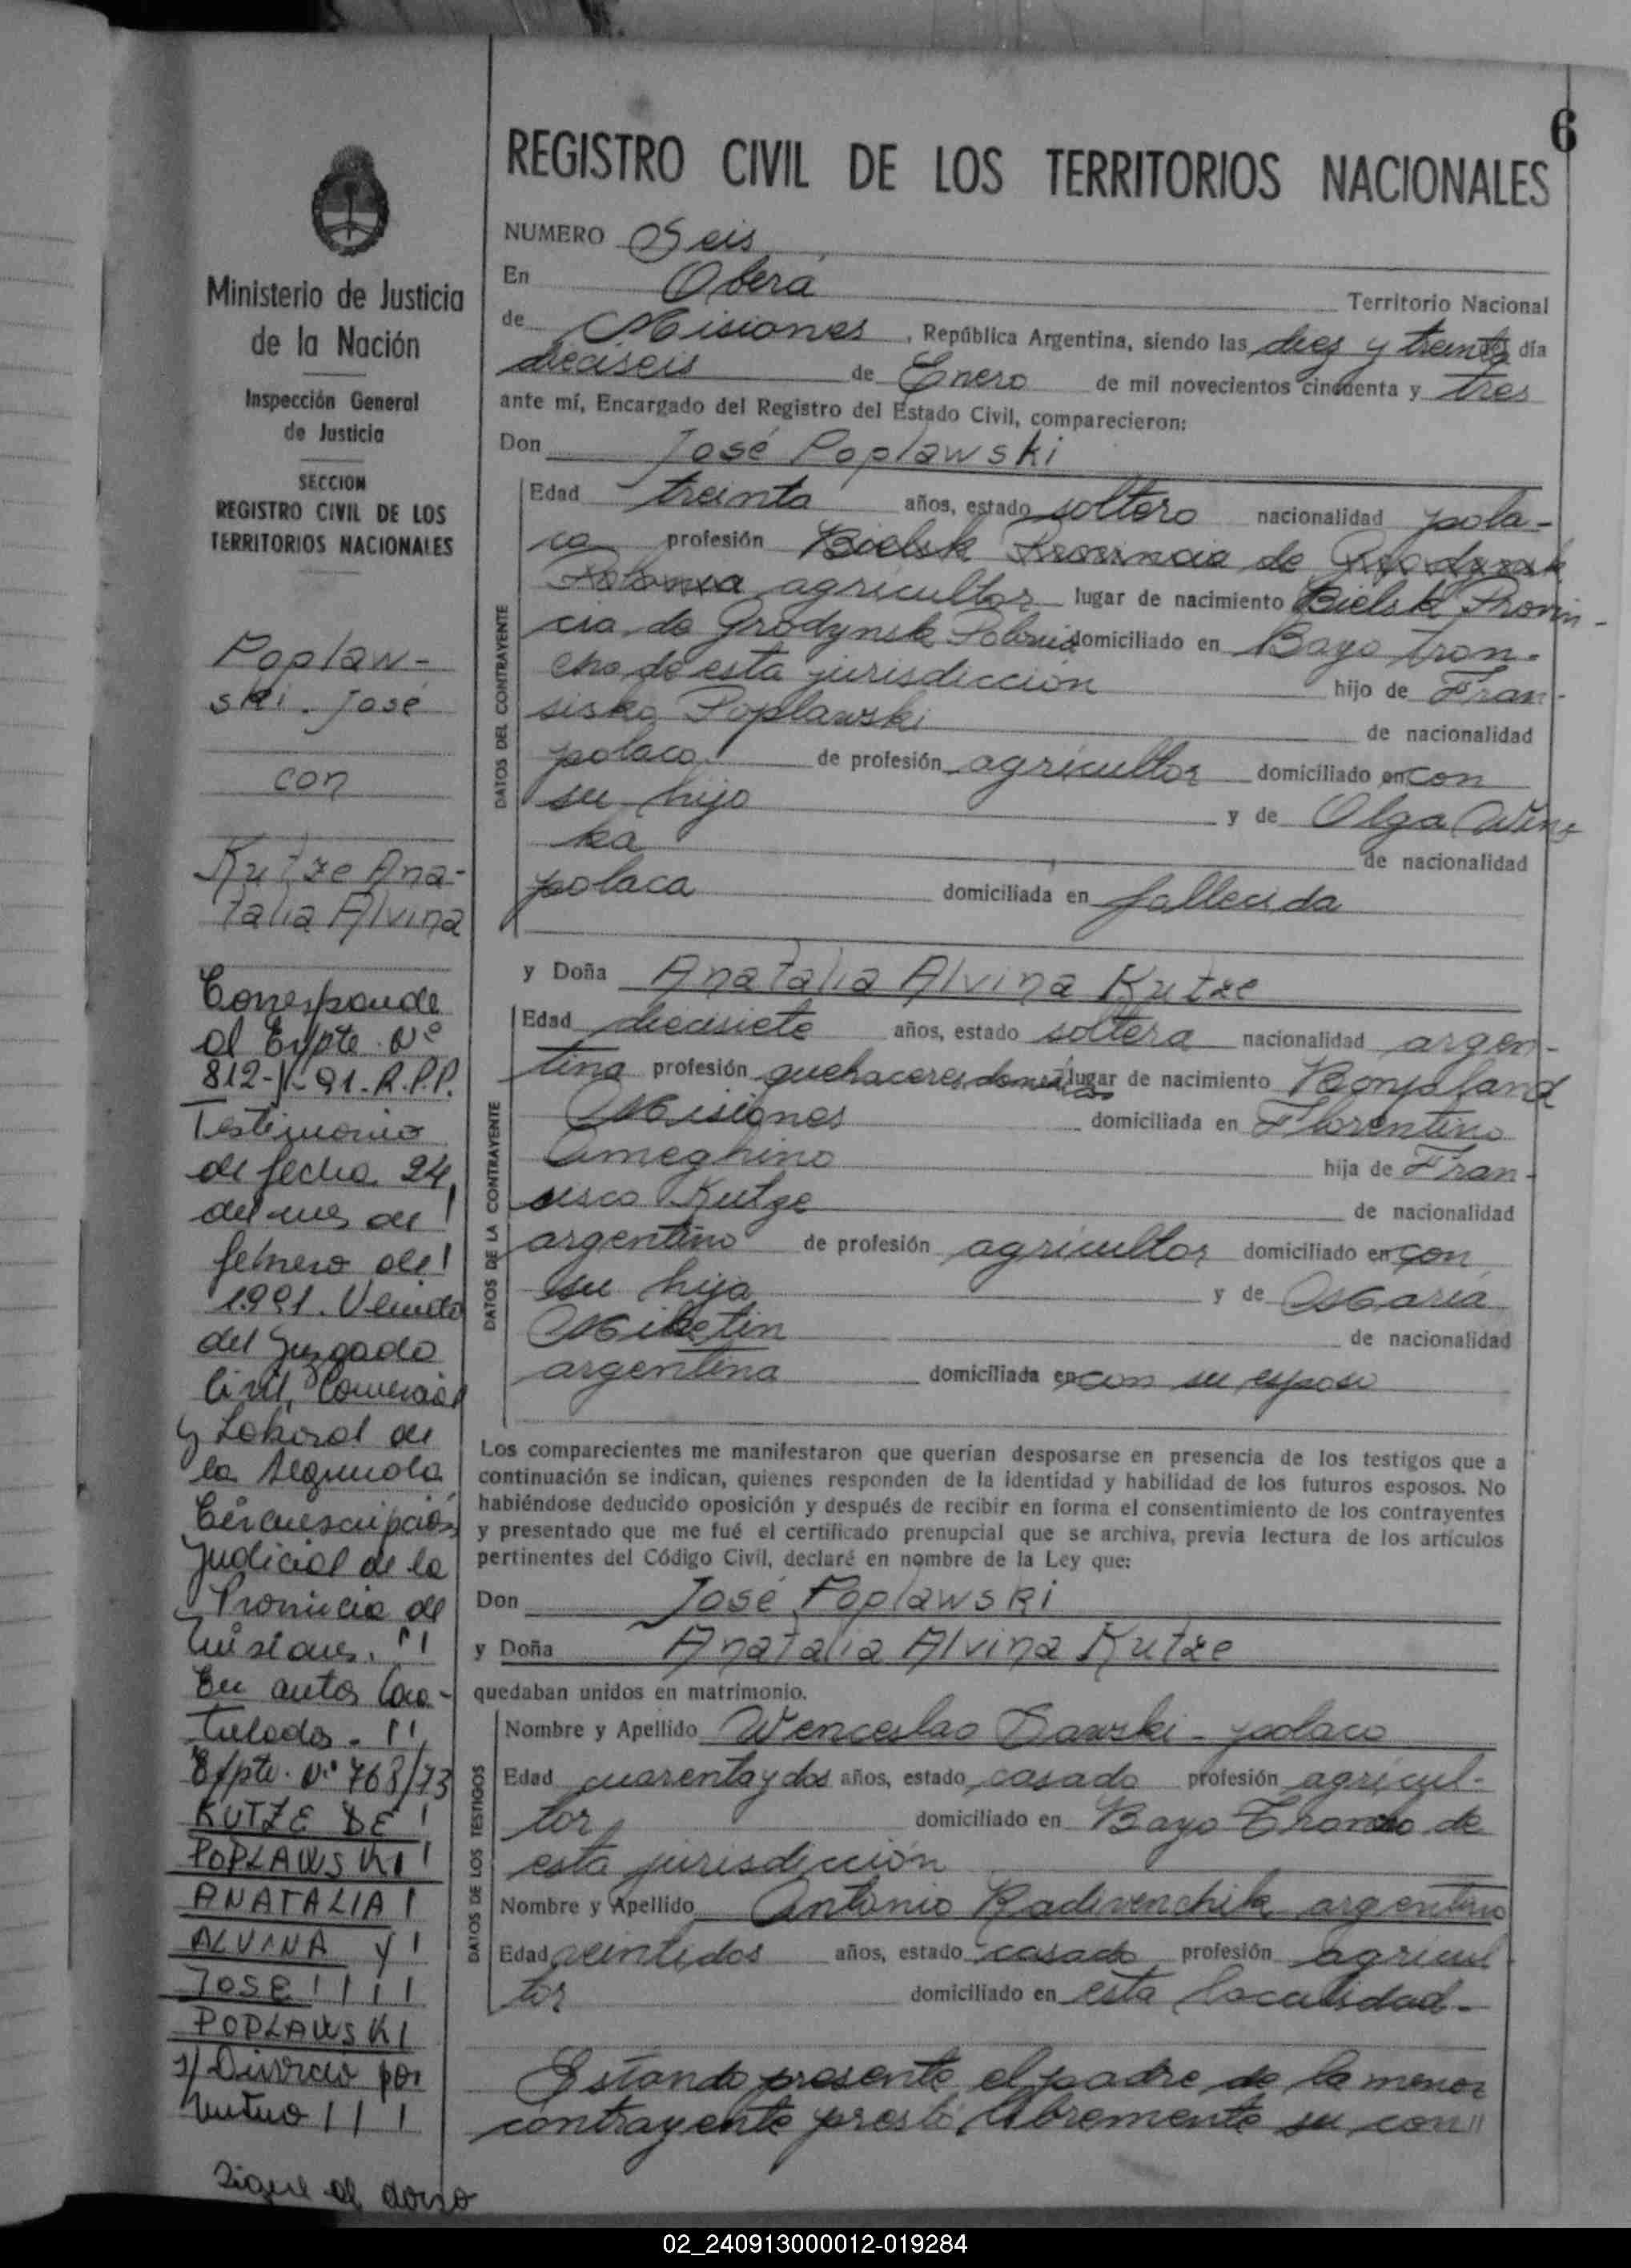 6
REGISTRO CIVIL DE LOS TERRITORIOS NACIONALES
Ministerio de Justicia
de la Nación
Inspección General
de Justicia
SECCION
REGISTRO CIVIL DE LOS
TERRITORIOS NACIONALES
Poplaw-
ski. José
con
Kutze Ana-
talia Alvina
Corresponde
al Expte. Nº
812-J-91. R.P.P.
Testimonio
de fecha 24
del mes de
febrero de
1991. Venido
del Juzgado
Civil, Comercial
y Laboral de
la Segunda
Circunscripción
Judicial de la
Provincia de
Misiones.
En autos Cara-
tulados.
Expte. Nº 768/73
KUTZE DE
POPLAWSKI
ANATALIA
ALVINA y
JOSE
POPLAWSKI
s/ Divorcio por
Mutuo
Sigue al dorso
NUMERO Seis
En Oberá Territorio Nacional
de Misiones, República Argentina, siendo las diez y treinta día
dieciseis de Enero de mil novecientos cincuenta y tres
ante mí, Encargado del Registro del Estado Civil, comparecieron:
Don José Poplawski
DATOS DEL CONTRAYENTE
Edad treinta años, estado soltero nacionalidad pola-
ca profesión Bielsk Provincia de
Polonia agricultor lugar de nacimiento Bielsk Provin-
cia de Grodynsk Polonia domiciliado en Bayo Tron-
cho de esta jurisdicción hijo de Fran-
sisko Poplawski de nacionalidad
polaco de profesión agricultor domiciliado en con
su hijo y de Olga Wins
ka de nacionalidad
polaca domiciliada en fallecida
y Doña Anatalia Alvina Kutze
DATOS DE LA CONTRAYENTE
Edad diecisiete años, estado soltera nacionalidad argen-
tina profesión quehaceres domésticos lugar de nacimiento Bonpland
Misiones domiciliada en Florentino
Ameghino hija de Fran-
cisco Kutze de nacionalidad
argentino de profesión agricultor domiciliado en con
su hija y de María
Miketin de nacionalidad
argentina domiciliada en con su esposo
Los comparecientes me manifestaron que querían desposarse en presencia de los testigos que a
continuación se indican, quienes responden de la identidad y habilidad de los futuros esposos. No
habiéndose deducido oposición y después de recibir en forma el consentimiento de los contrayentes
y presentado que me fué el certificado prenupcial que se archiva, previa lectura de los artículos
pertinentes del Código Civil, declaré en nombre de la Ley que:
Don José Poplawski
y Doña Anatalia Alvina Kutze
quedaban unidos en matrimonio.
DATOS DE LOS TESTIGOS
Nombre y Apellido Wenceslao Sawski - polaco
Edad cuarenta y dos años, estado casado profesión agricul-
tor domiciliado en Bayo Troncho de
esta jurisdicción
Nombre y Apellido Antonio Radivenchik argentino
Edad veintidos años, estado casado profesión agricul
tor domiciliado en esta localidad.-
Estando presente el padre de la menor
contrayente prestó libremente su con//
02_240913000012-019284